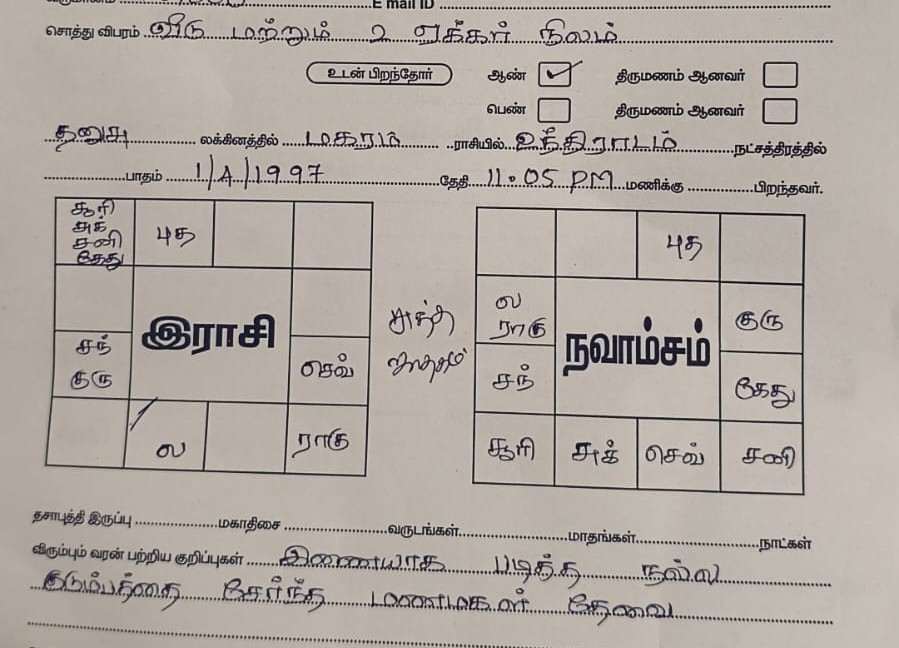 E mail ID
சொத்து விபரம் வீடு மற்றும் 2 ஏக்கர் நிலம்
உடன் பிறந்தோர் ஆண் ✓ திருமணம் ஆனவர்
பெண் திருமணம் ஆனவர்
தனுசு லக்கினத்தில் மகரம் ராசியில் உத்திராடம் நட்சத்திரத்தில்
பாதம் 1/4/1997 தேதி 11.05 PM மணிக்கு பிறந்தவர்.
சூரி
சுக்
சனி
கேது
புத
சந்
குரு
இராசி
செவ்
ல
ராகு
சுத்த
ஜாதகம்
புத
ல
ராகு
குரு
நவாம்சம்
சந்
கேது
சூரி சுக் செவ் சனி
தசாபுத்தி இருப்பு மகாதிசை வருடங்கள் மாதங்கள் நாட்கள்
விரும்பும் வரன் பற்றிய குறிப்புகள் இணையாக படித்த நல்ல
குடும்பத்தை சேர்ந்த மணமகள் தேவை